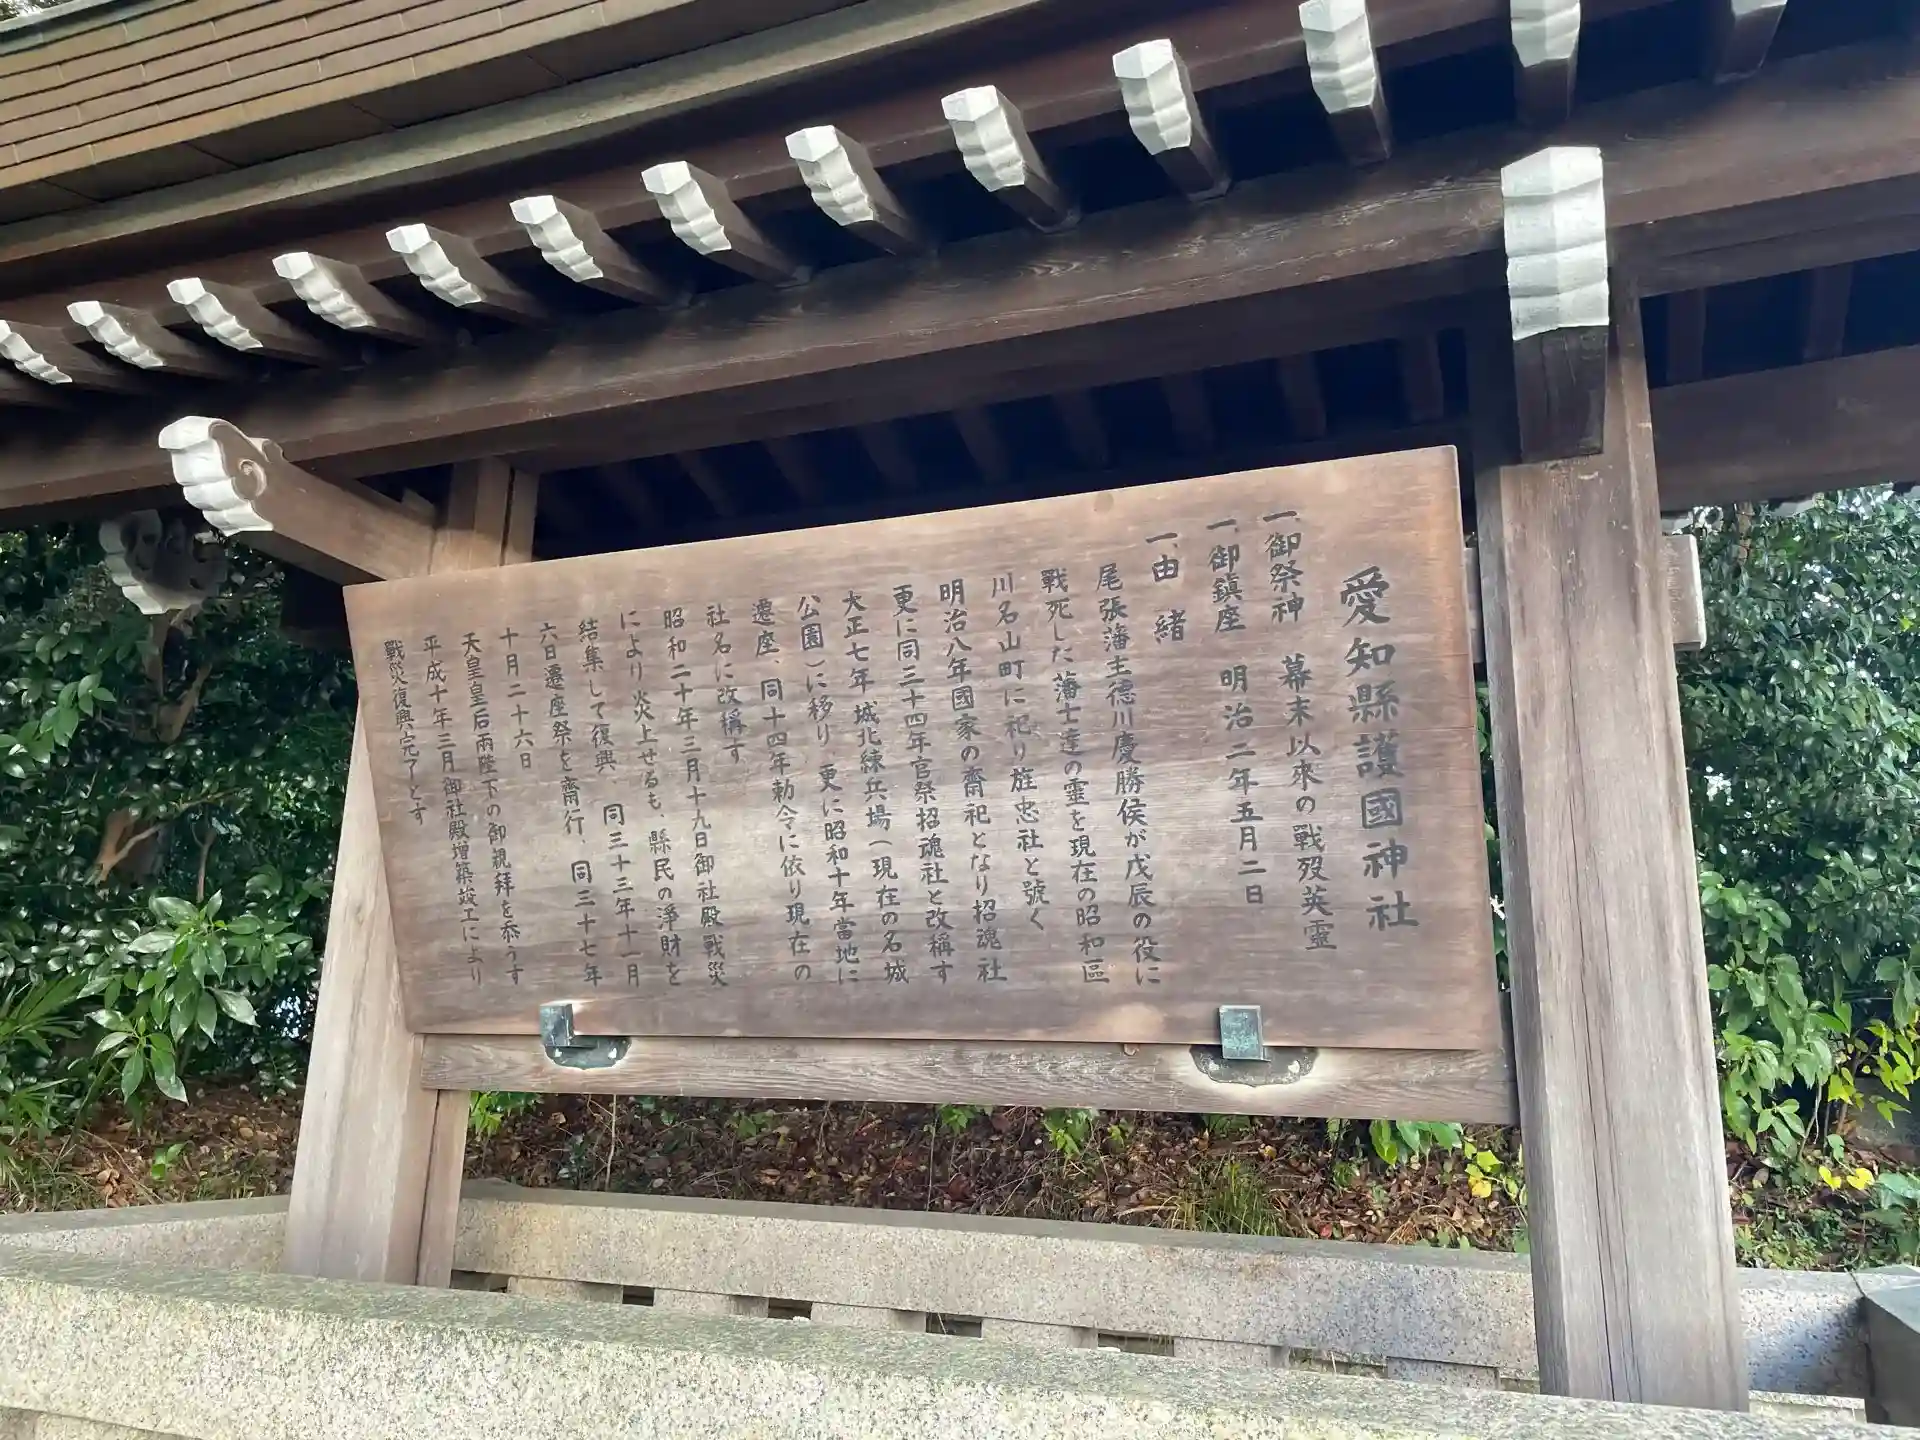 愛知縣護國神社
一、御祭神　幕末以來の戰歿英靈
一、御鎮座　明治二年五月二日
一、由　緒
尾張藩主德川慶勝侯が戊辰の役に
戰死した藩士達の靈を現在の昭和區
川名山町に祀り旌忠社と號く
明治八年國家の齋祀となり招魂社
更に同三十四年官祭招魂社と改稱す
大正七年城北練兵場（現在の名城
公園）に移り、更に昭和十年當地に
遷座、同十四年勅令に依り現在の
社名に改稱す
昭和二十年三月十九日御社殿戰災
により炎上せるも、縣民の淨財を
結集して復興、同三十三年十一月
六日遷座祭を齋行、同三十七年
十月二十六日
天皇皇后兩陛下の御親拜を忝うす
平成十年三月御社殿增築竣工により
戰災復興完了とす